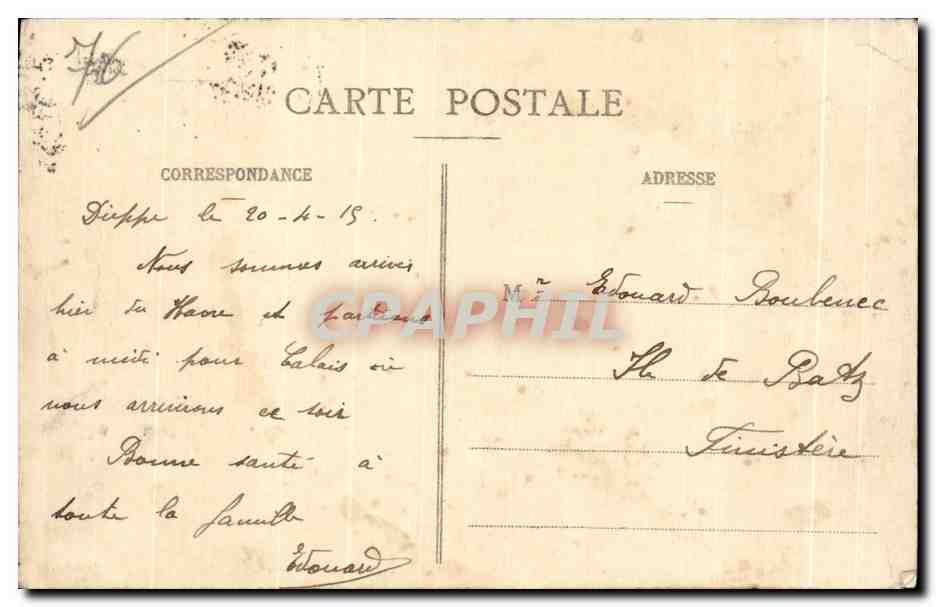 76
CARTE POSTALE
CORRESPONDANCE
Dieppe le 20-4-15.
Nous sommes arrivés
hier du Havre et partons
à midi pour Calais où
nous arriverons ce soir
Bonne santé à
toute la famille
Edouard
ADRESSE
Mr Edouard Boulbenec
Ile de Batz
Finistère
CPAPHIL